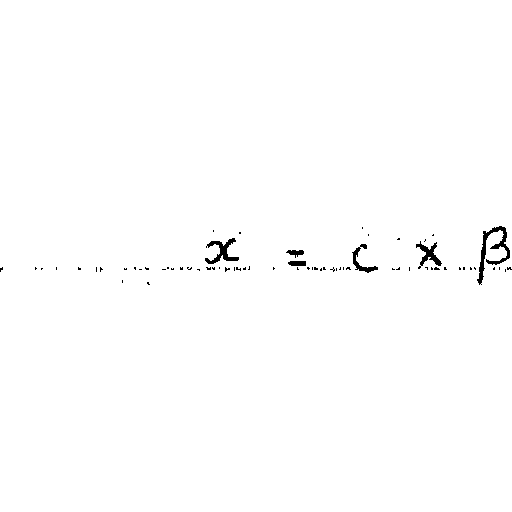 x = c × β